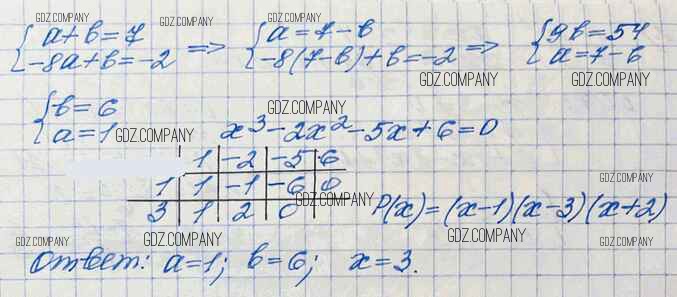 GDZ.COMPANY GDZ.COMPANY GDZ.COMPANY
{a+b=7 => {a=7-b => {9b=54
{-8a+b=-2 {-8(7-b)+b=-2 {a=7-b
GDZ.COMPANY GDZ.COMPANY
{b=6 GDZ.COMPANY
{a=1 GDZ.COMPANY x³-2x²-5x+6=0
1 -2 -5 6
1 1 -1 -6 0
GDZ.COMPANY
3 1 2 0 P(x)=(x-1)(x-3)(x+2)
GDZ.COMPANY GDZ.COMPANY GDZ.COMPANY GDZ.COMPANY
Ответ: a=1; b=6; x=3.